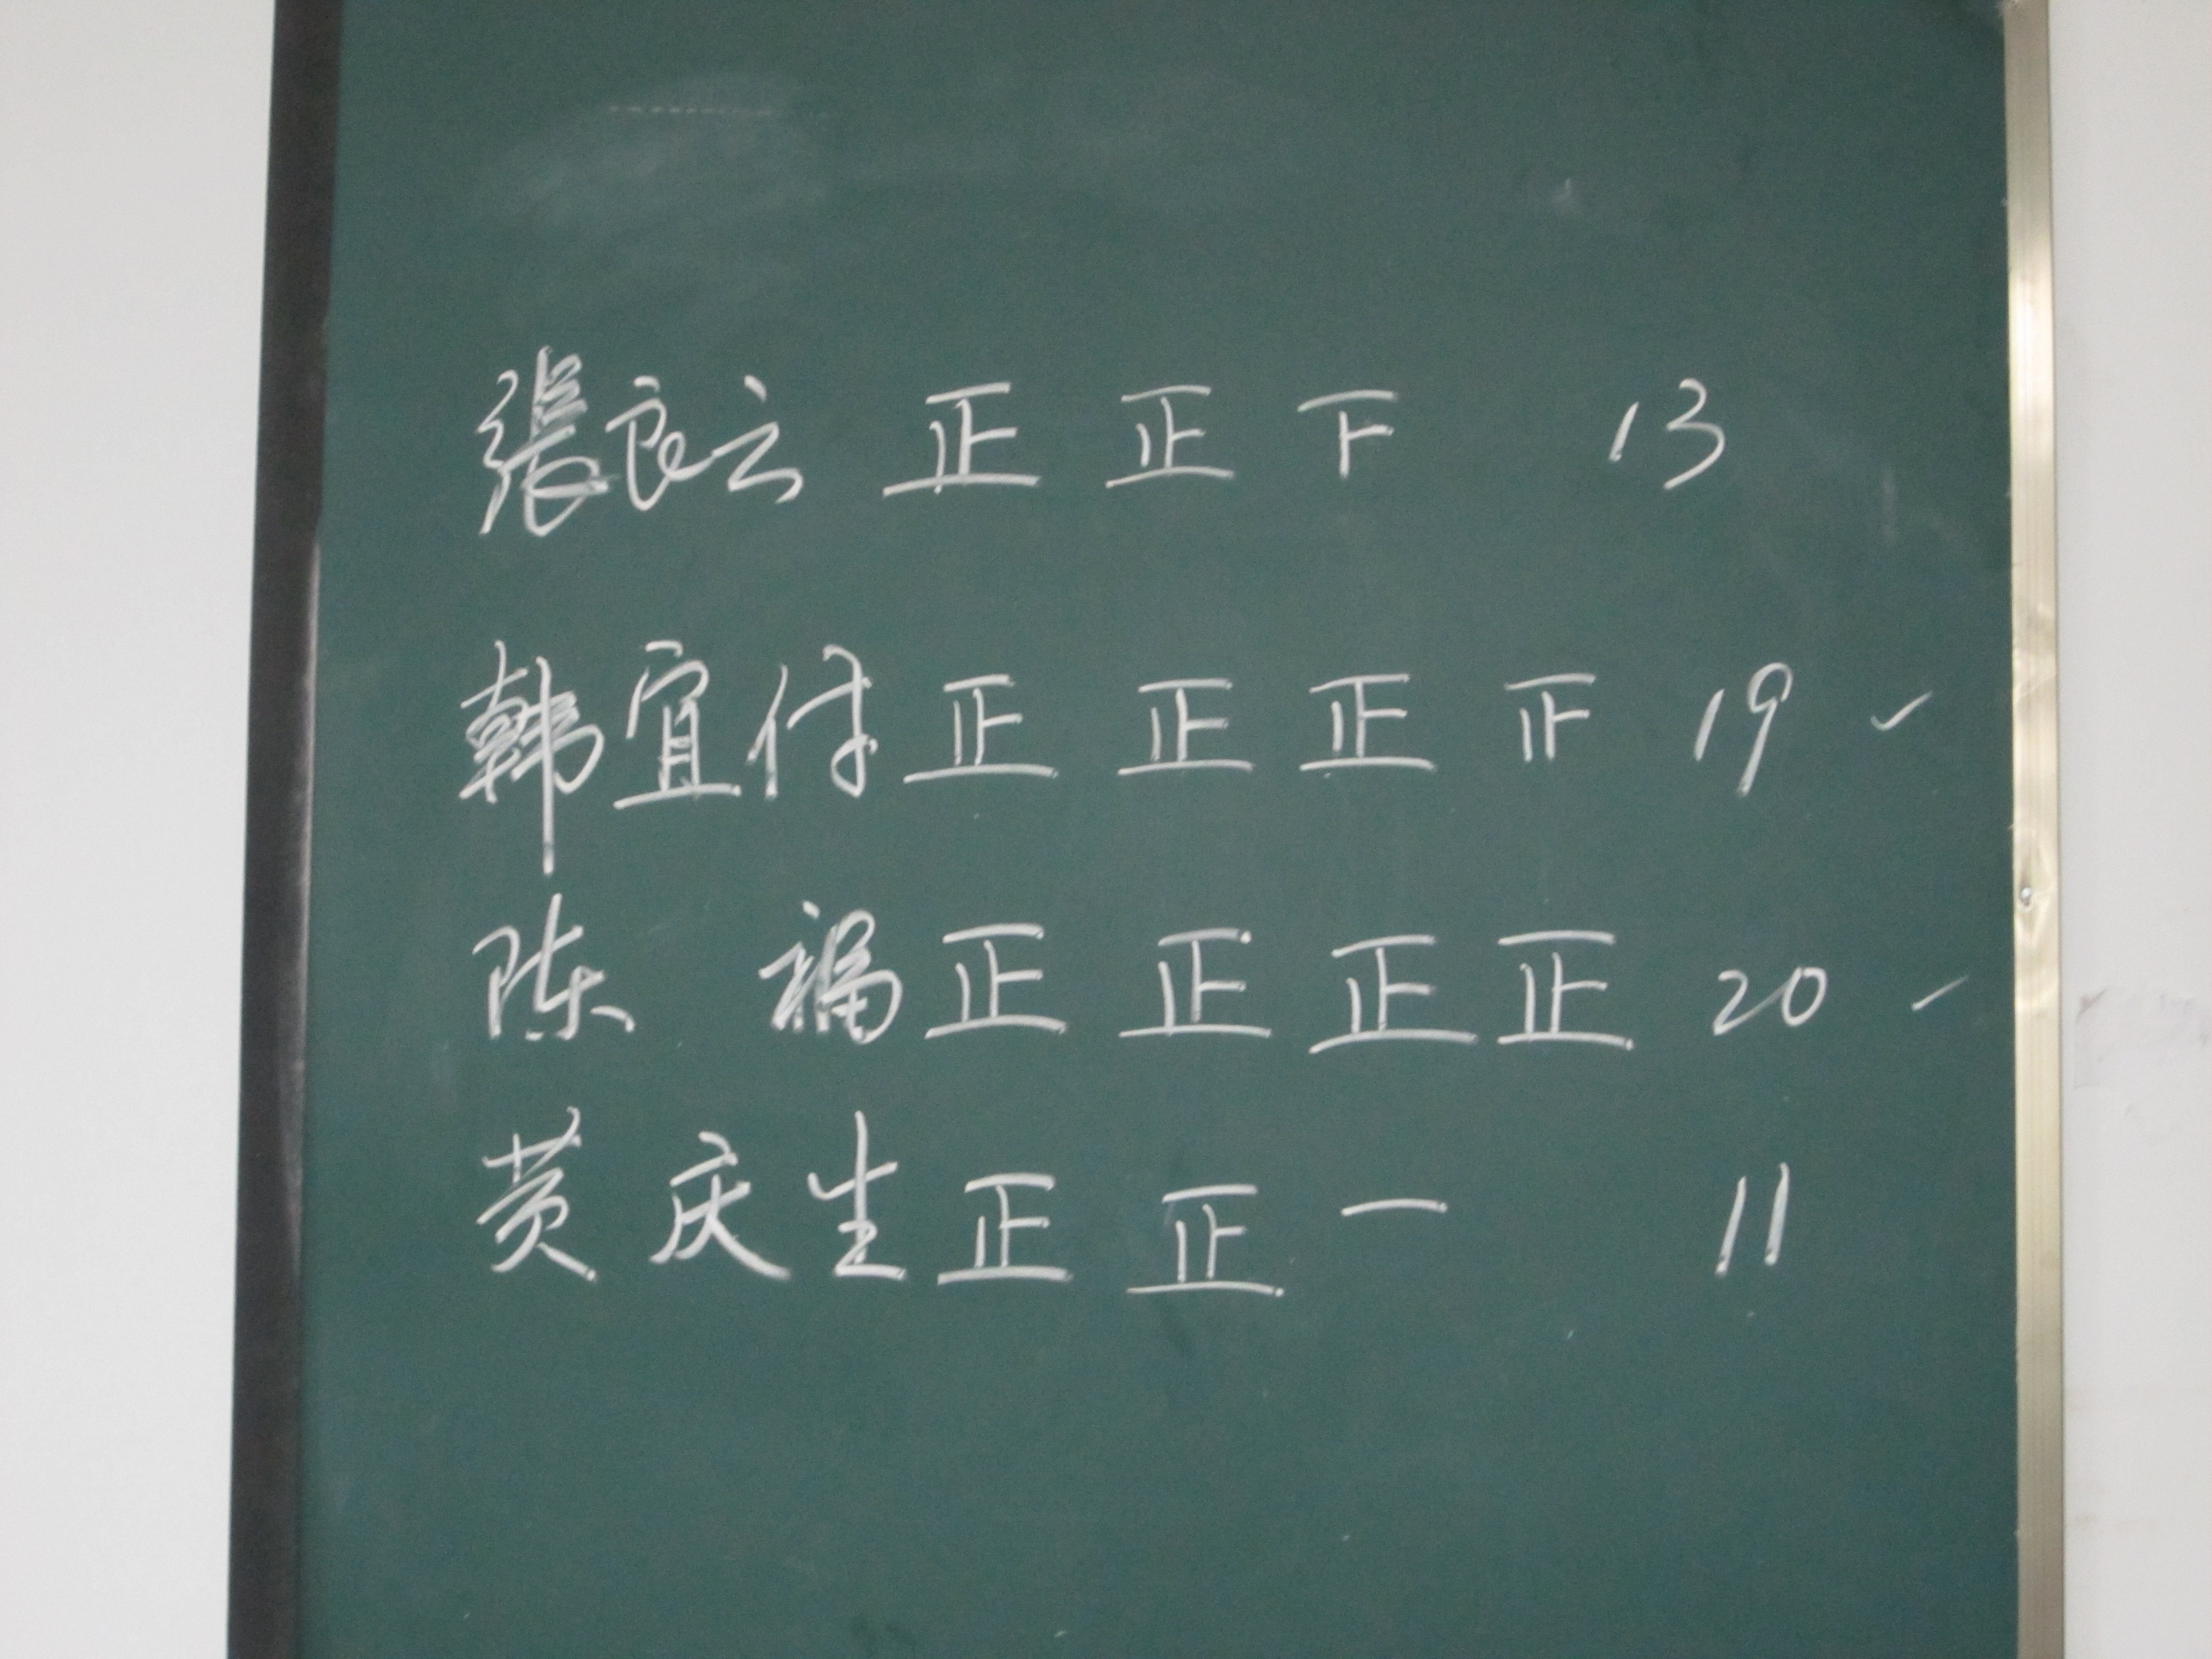 張良云 正 正 下 13
韩宜付 正 正 正 𤴓 19 ✓
陈 福 正 正 正 正 20 ✓
黄庆生 正 正 一 11